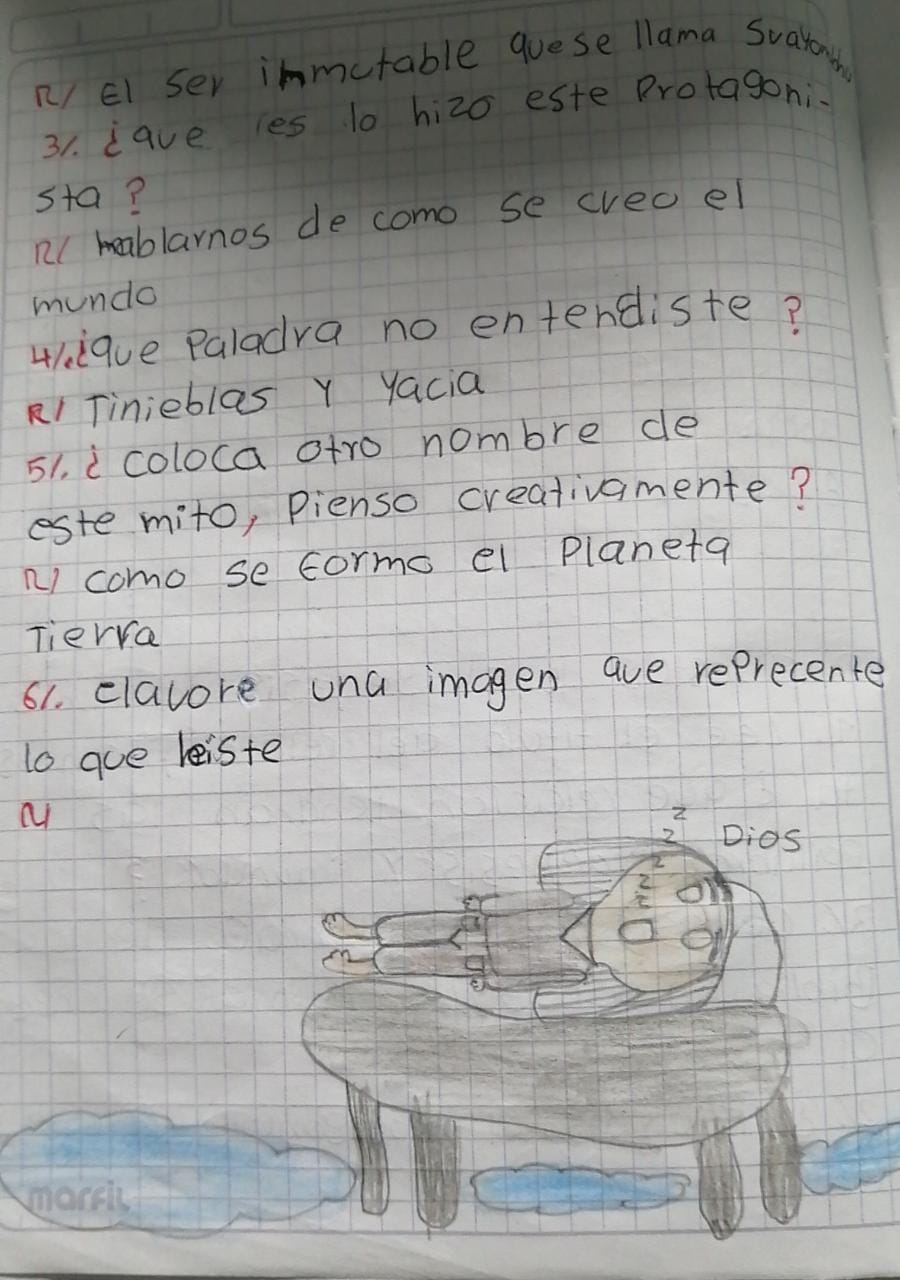 R/ El ser inmutable que se llama Svayambhu
3/. ¿que es lo hizo este Protagoni-
sta?
R/ hablarnos de como se creo el
mundo
4/. ¿que Paladra no entendiste?
R/ Tinieblas Y Yacia
5/. ¿ coloca otro nombre de
este mito, Pienso creativamente?
R/ como se formo el Planeta
Tierra
6/. elavore una imagen que reprecente
lo que leiste
R/
z
z Dios
z
z
z
marfil